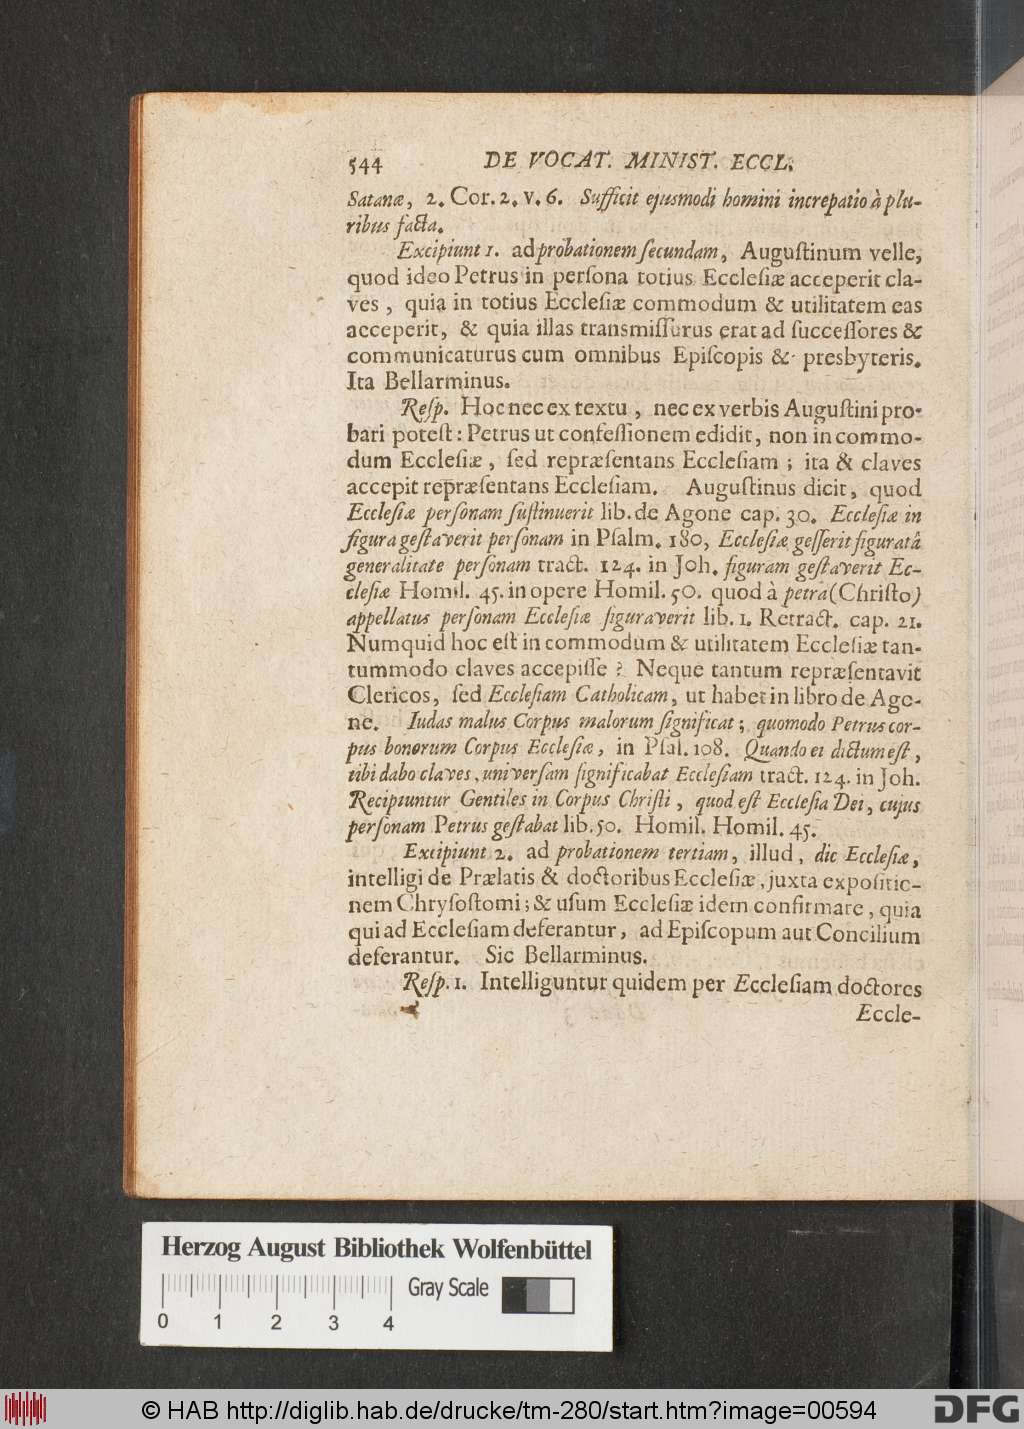 544 DE VOCAT. MINIST. ECCL.
Satanæ, 2. Cor. 2. v. 6. Sufficit ejusmodi homini increpatio à plu-
ribus facta.
Excipiunt 1. ad probationem ſecundam, Auguſtinum velle,
quod ideo Petrus in perſona totius Eccleſiæ acceperit cla-
ves, quia in totius Eccleſiæ commodum & utilitatem eas
acceperit, & quia illas transmiſſurus erat ad ſucceſſores &
communicaturus cum omnibus Epiſcopis & presbyteris.
Ita Bellarminus.
Reſp. Hoc nec ex textu, nec ex verbis Auguſtini pro-
bari poteſt: Petrus ut confeſſionem edidit, non in commo-
dum Eccleſiæ, ſed repræſentans Eccleſiam; ita & claves
accepit repræſentans Eccleſiam. Auguſtinus dicit, quod
Eccleſiæ perſonam ſuſtinuerit lib. de Agone cap. 30. Eccleſiæ in
figura geſtaverit perſonam in Pſalm. 180, Eccleſiæ geſſerit figuratâ
generalitate perſonam tract. 124. in Joh. figuram geſtaverit Ec-
cleſiæ Homil. 45. in opere Homil. 50. quod à petrâ (Chriſto)
appellatus perſonam Eccleſiæ figuraverit lib. 1. Retract. cap. 21.
Numquid hoc eſt in commodum & utilitatem Eccleſiæ tan-
tummodo claves accepiſſe? Neque tantum repræſentavit
Clericos, ſed Eccleſiam Catholicam, ut habet in libro de Ago-
ne. Iudas malus Corpus malorum ſignificat; quomodo Petrus cor-
pus bonorum Corpus Eccleſiæ, in Pſal. 108. Quando ei dictum eſt,
tibi dabo claves, univerſam ſignificabat Eccleſiam tract. 124. in Joh.
Recipiuntur Gentiles in Corpus Chriſti, quod eſt Eccleſia Dei, cujus
perſonam Petrus geſtabat lib. 50. Homil. Homil. 45.
Excipiunt 2. ad probationem tertiam, illud, dic Eccleſiæ,
intelligi de Prælatis & doctoribus Eccleſiæ, juxta expoſitio-
nem Chryſoſtomi; & uſum Eccleſiæ idem confirmare, quia
qui ad Eccleſiam deferantur, ad Epiſcopum aut Concilium
deferantur. Sic Bellarminus.
Reſp. 1. Intelliguntur quidem per Eccleſiam doctores
Eccle-
Herzog August Bibliothek Wolfenbüttel
Gray Scale
0 1 2 3 4
© HAB http://diglib.hab.de/drucke/tm-280/start.htm?image=00594
DFG